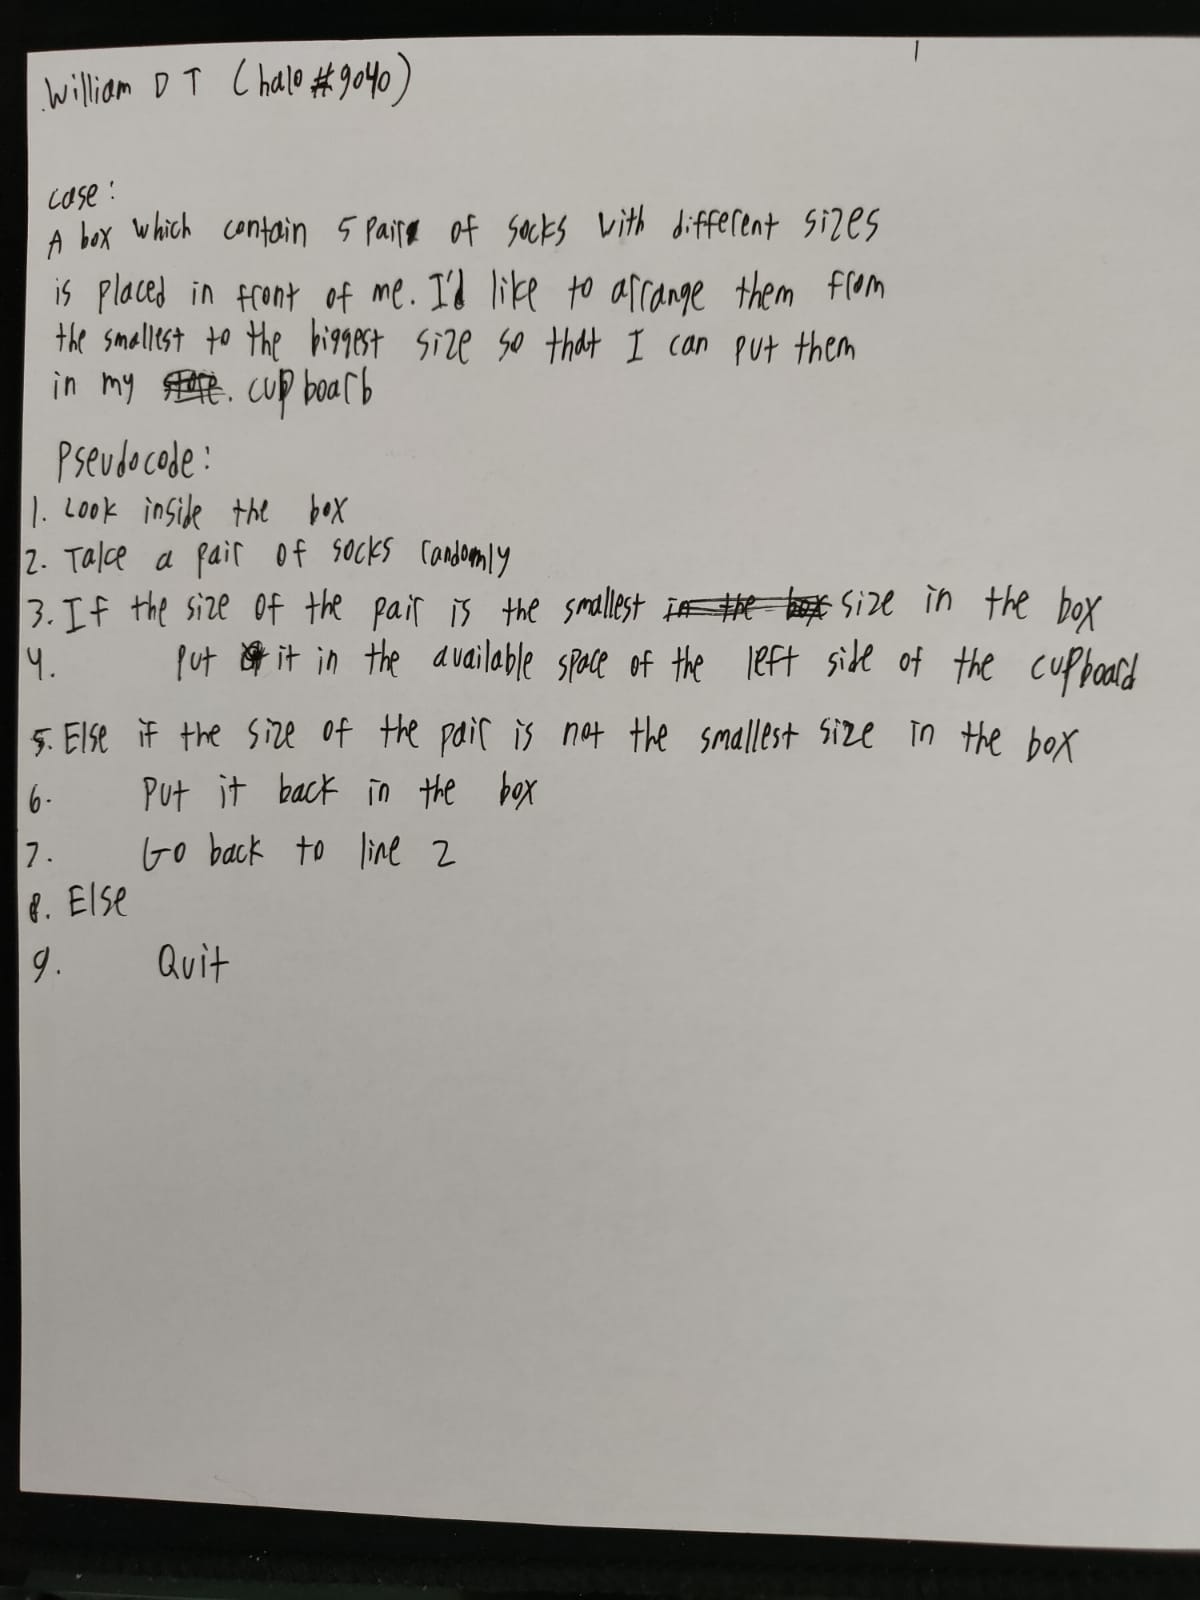 William D T (halo#9040)
case:
A box which contain 5 pairs of socks with different sizes
is placed in front of me. I'd like to arrange them from
the smallest to the biggest size so that I can put them
in my cupboarb
Pseudocode:
1. Look inside the box
2. Take a pair of socks randomly
3. If the size of the pair is the smallest in the box size in the box
4. Put it in the available space of the left side of the cupboard
5. Else if the size of the pair is not the smallest size in the box
6. Put it back in the box
7. Go back to line 2
8. Else
9. Quit